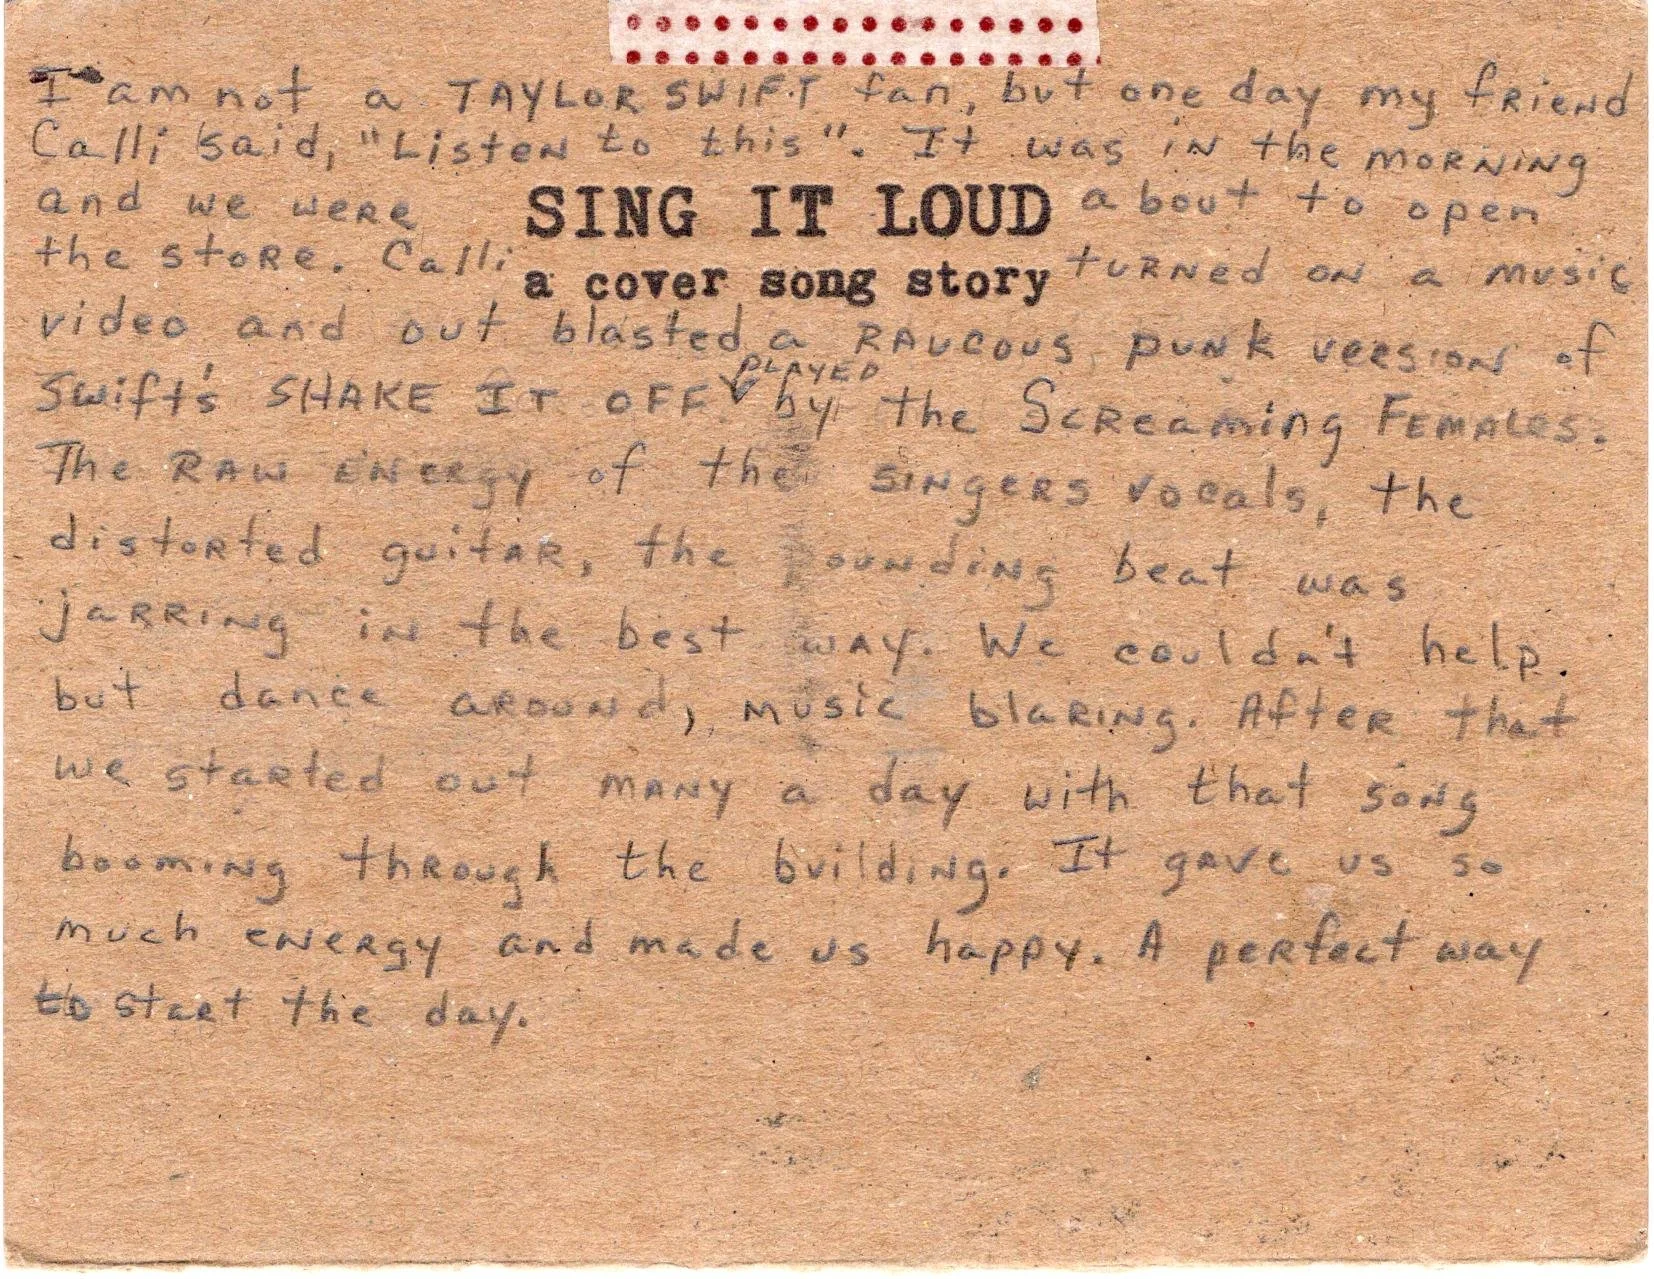 I am not a TAYLOR SWIFT fan, but one day my friend
Calli said, "Listen to this". It was in the morning
and we were SING IT LOUD about to open
the store. Calli a cover song story turned on a music
video and out blasted a RAUCOUS punk version of
Swift's SHAKE IT OFF PLAYED by the Screaming FEMALES.
The RAW ENERGY of the singers vocals, the
distorted guitar, the pounding beat was
jarring in the best way. We couldn't help
but dance around, music blaring. After that
we started out many a day with that song
booming through the building. It gave us so
much energy and made us happy. A perfect way
to start the day.